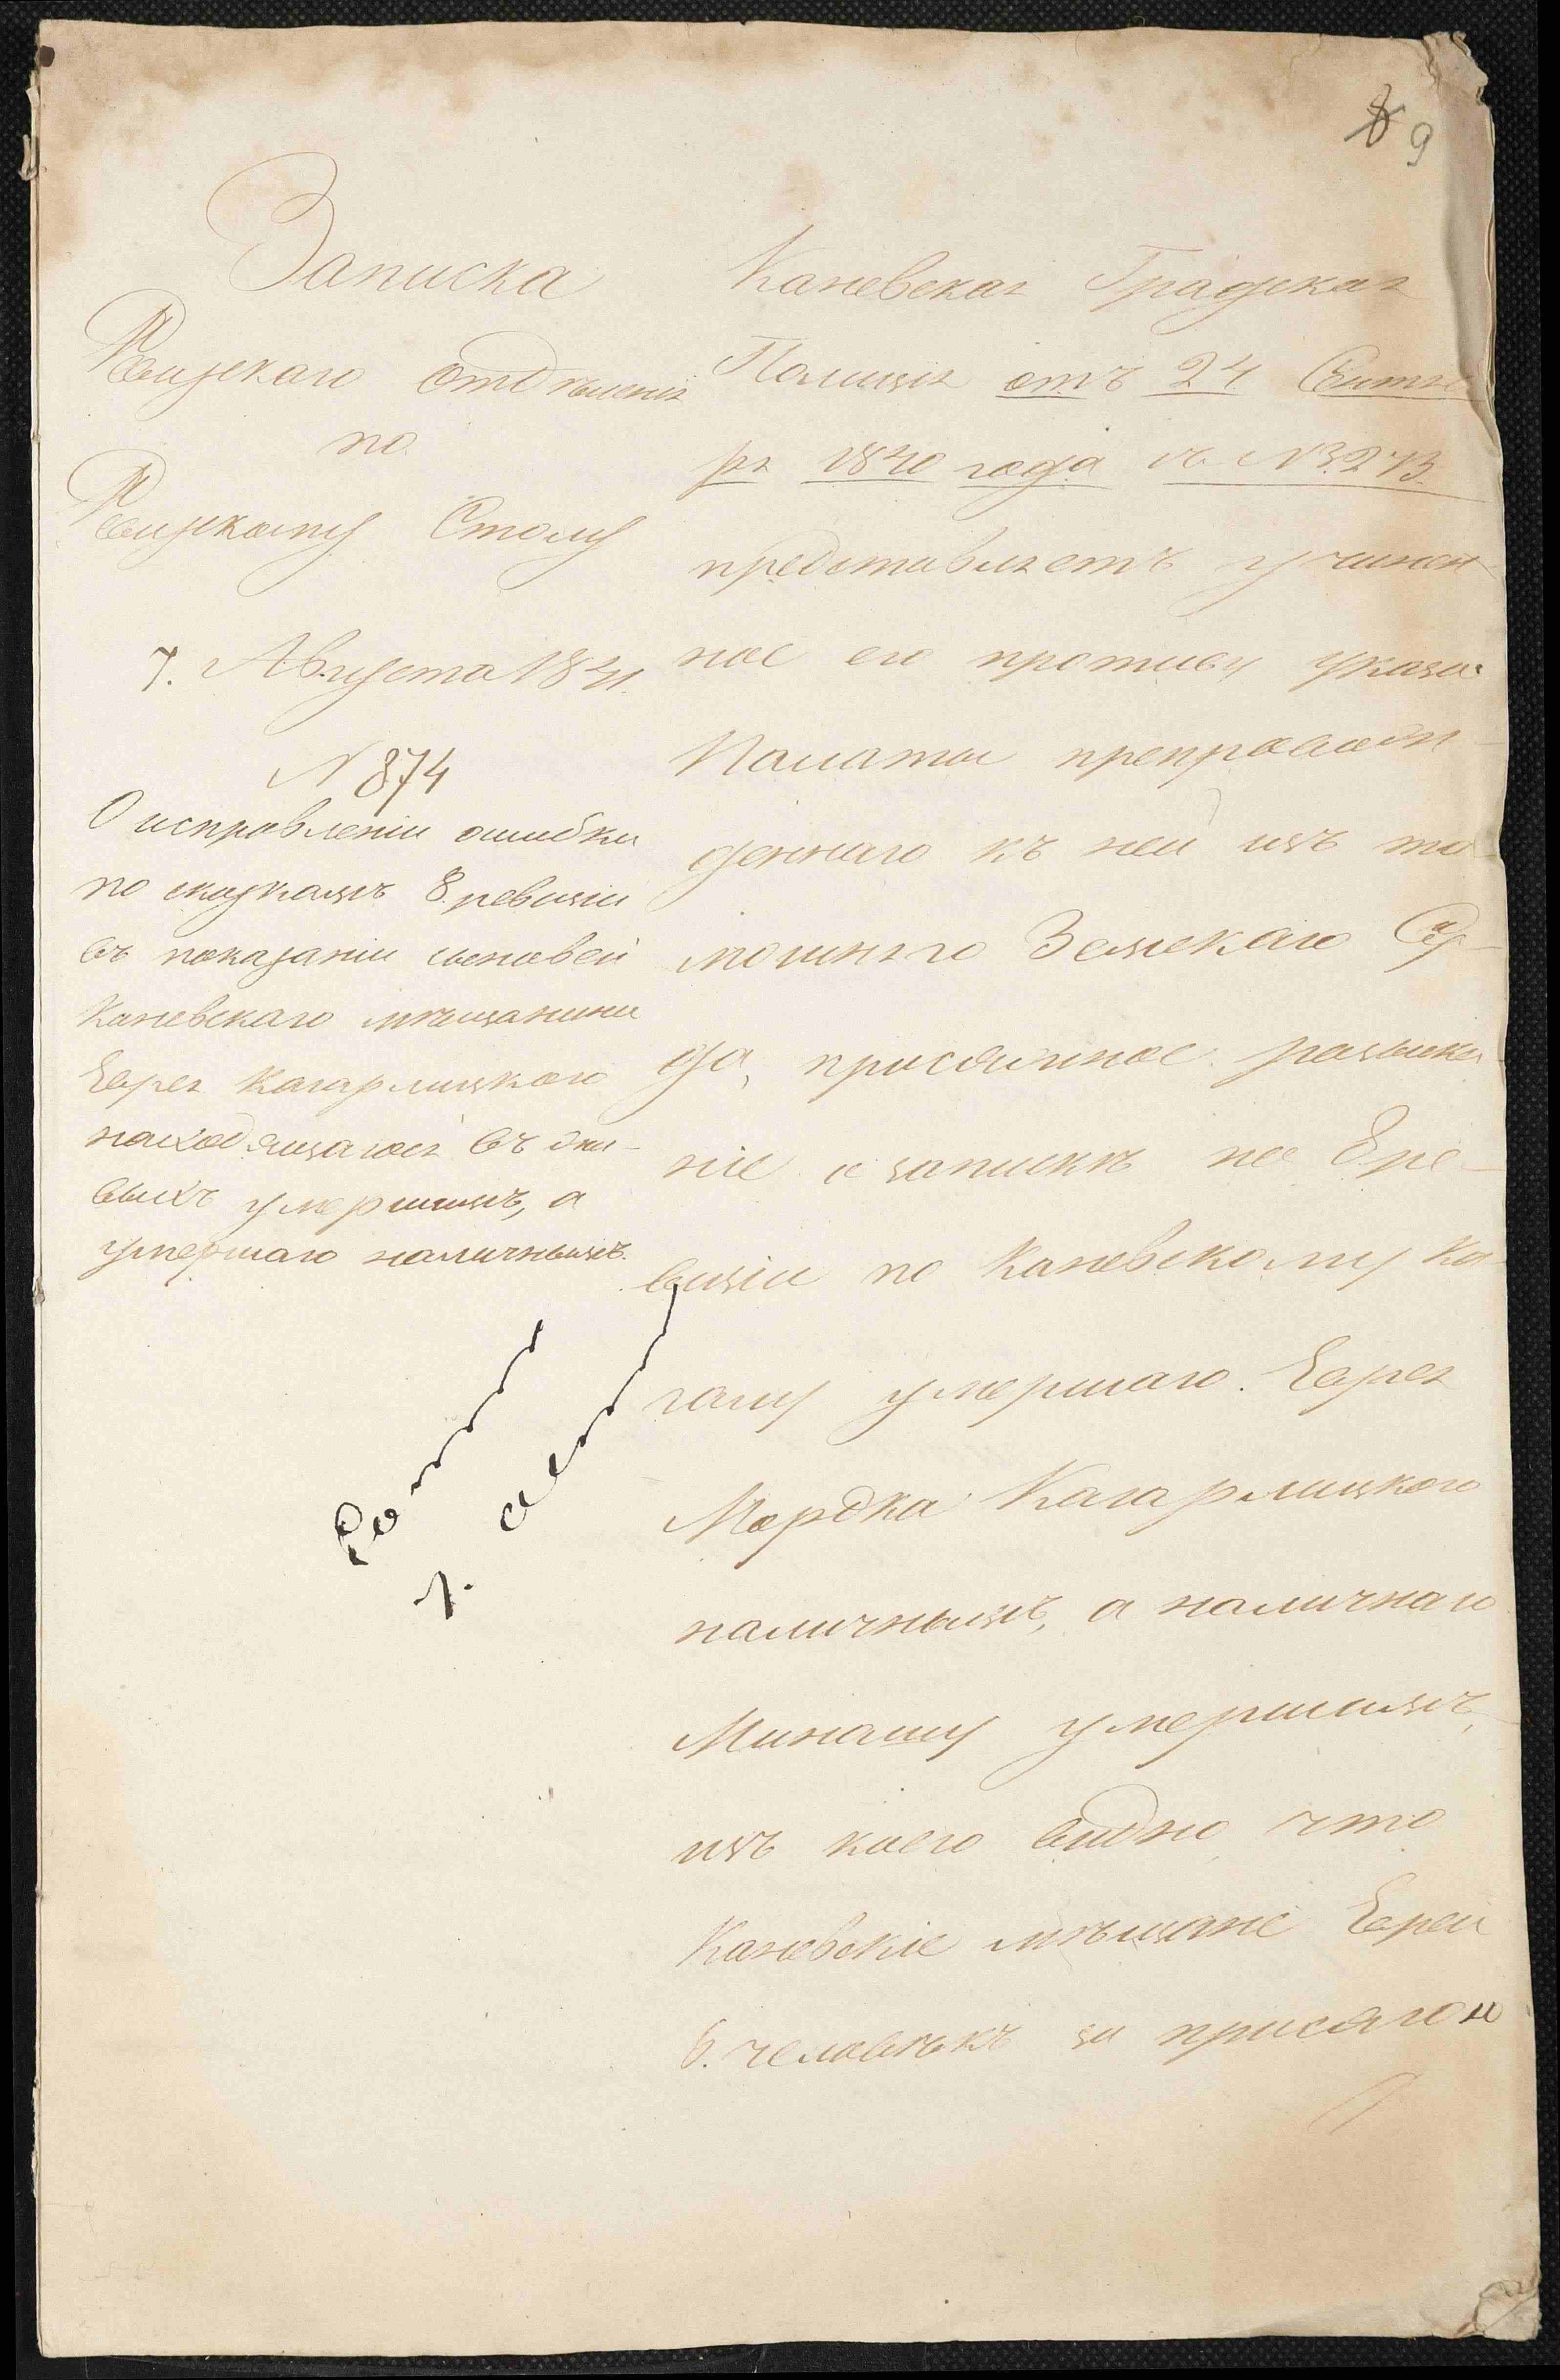 8 9
Записка
Ревизскаго Отделенія
по
Ревизскому Столу
7. Августа 1841.
N 874
О исправленіи ошибки
по сказкамъ 8. ревизіи
въ показаніи сыновей
Каневскаго мѣщанина
Еврея Кагарлицкого
находящагося въ жи-
выхъ умершимъ, а
умершаго наличнымъ.
Каневская Градская
Полиція отъ 24 Сентяб
ря 1840 года за N 3273
представляетъ учинен-
ное его противу указа
Палаты препровож-
деннаго къ ней изъ та
мошняго Земскаго Су-
да, присяжное разыска
ніе о запискѣ по 8 ре-
визіи по Каневскому ка-
галу умершаго. Еврея
Мордка Кагарлицкого
наличнымъ, а наличнаго
Минашу умершимъ,
изъ коего видно что
Каневскіе мѣщане Евреи
6. человѣкъ за присягою